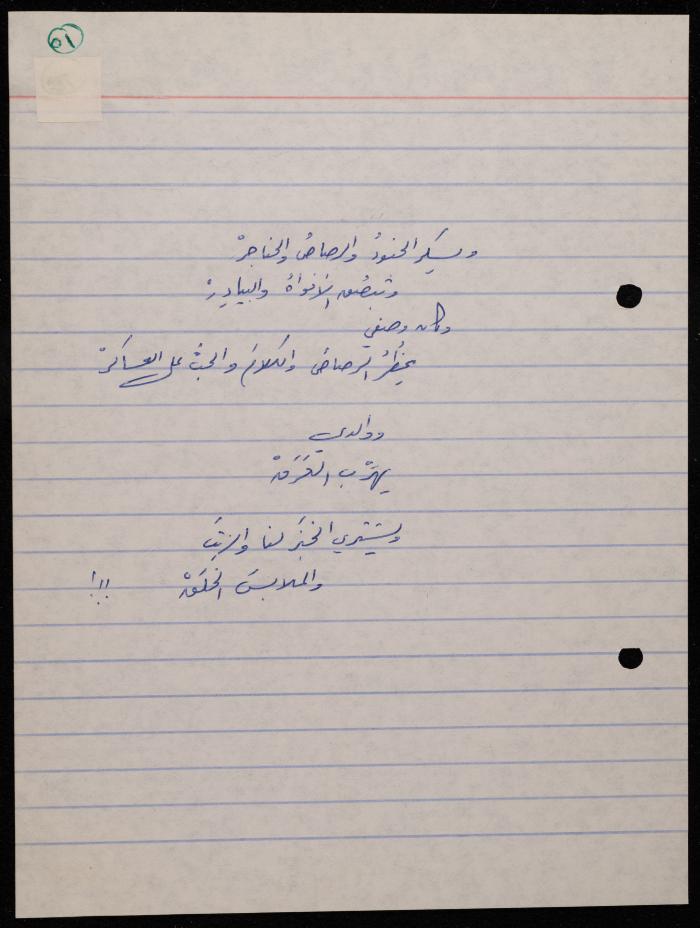 ويسكر الجنودُ والرصاصُ والخناجرْ
وتبصُقُ الأفواهُ والبيادِرْ
وكان وصفي
يحظُرُ الرصاصَ والكلامَ والحبَّ على العساكرْ
ووالدي
يهرّب العَرَقْ
ويشتري الخبزَ لنا والزيتَ
والملابسَ الخَلَقْ !!!